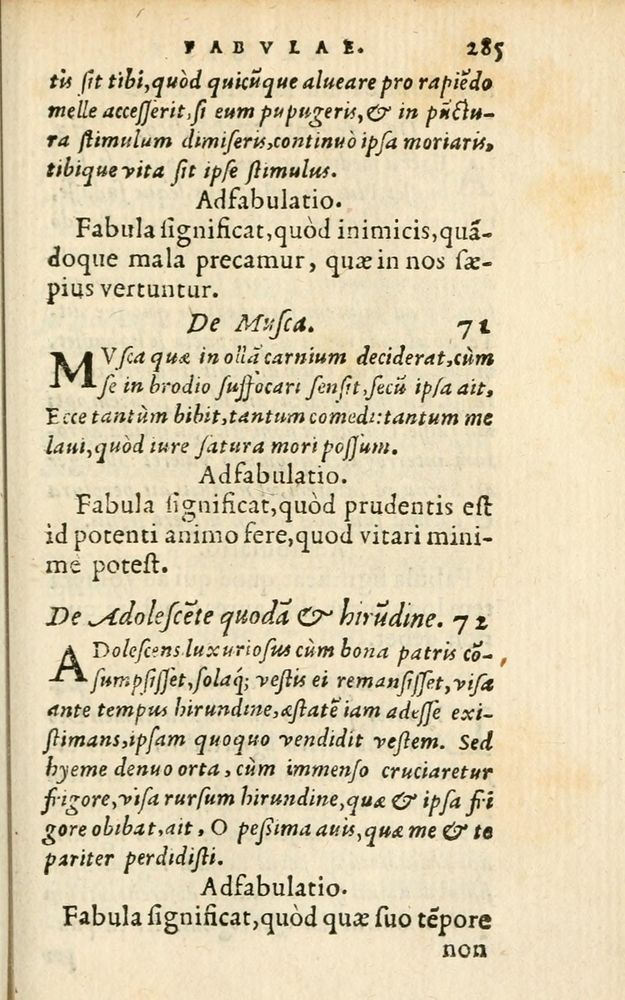 FABVLAE. 285
tis sit tibi, quòd quicũque alueare pro rapiẽdo
melle accesserit, si eum pupugeris, & in pũctu-
ra stimulum dimiseris, continuò ipsa moriaris,
tibique vita sit ipse stimulus.
Adfabulatio.
Fabula significat, quòd inimicis, quã-
doque mala precamur, quæ in nos sæ-
pius vertuntur.
De Musca. 71
MVsca quæ in ollã carnium deciderat, cùm
se in brodio suffocari sensit, secũ ipsa ait,
Ecce tantùm bibit, tantum comedi: tantum me
laui, quòd iure satura mori possum.
Adfabulatio.
Fabula significat, quòd prudentis est
id potenti animo fere, quod vitari mini-
mè potest.
De Adolescẽte quodã & hirũdine. 72
ADolescens luxuriosus cùm bona patris cõ-
sumpsisset, solaq; vestis ei remansisset, visa
ante tempus hirundine, æstatẽ iam adesse exi-
stimans, ipsam quoquo vendidit vestem. Sed
hyeme denuo orta, cùm immenso cruciaretur
frigore, visa rursum hirundine, quæ & ipsa fri
gore obibat, ait, O pessima auis, quæ me & te
pariter perdidisti.
Adfabulatio.
Fabula significat, quòd quæ suo tẽpore
non